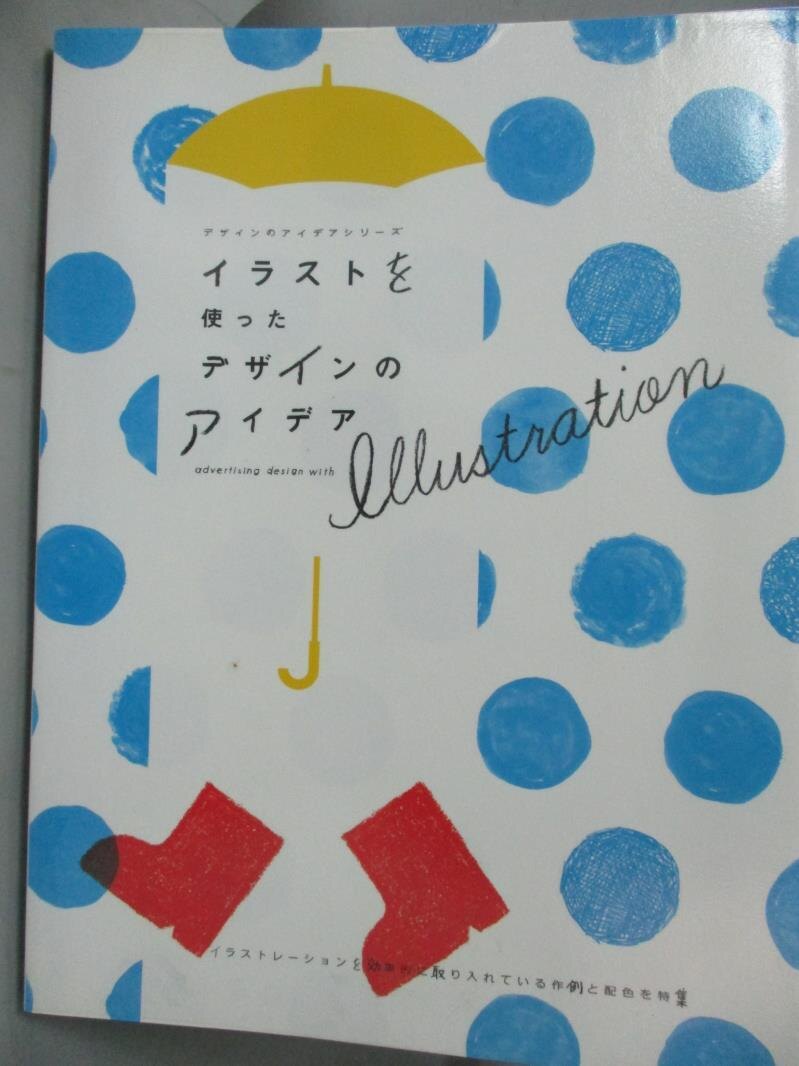 デザインのアイデアシリーズ
イラストを
使った
デザインの
アイデア
advertising design with
Illustration
イラストレーションを効果的に取り入れている作例と配色を特集